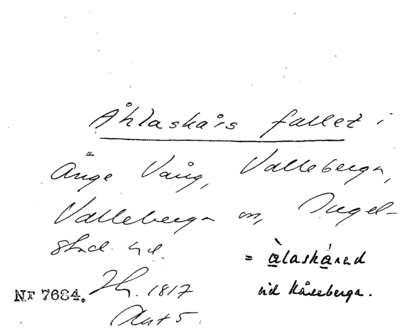 Åhlaskårs fallet i
Änge Vång, Valleberga,
Valleberga sn, Ingel-
stad hd.
= àlaskàrad
vid Kåseberga.
NF 7684. Jh. 1817
Akt 5.